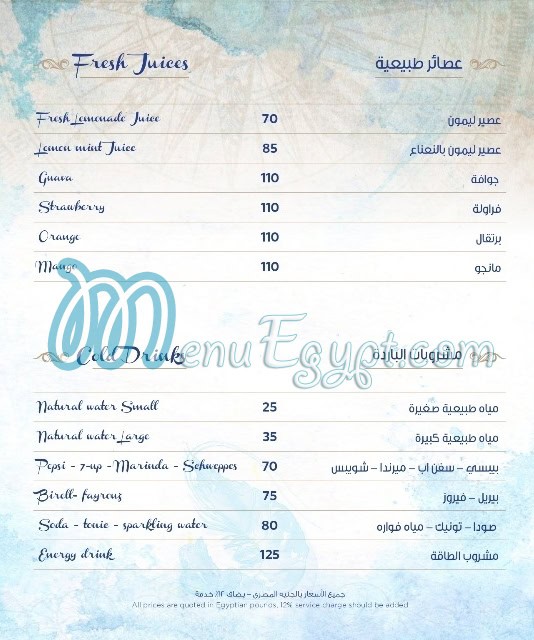 Fresh Juices عصائر طبيعية
Fresh Lemonade Juice 70 عصير ليمون
Lemon mint Juice 85 عصير ليمون بالنعناع
Guava 110 جوافة
Strawberry 110 فراولة
Orange 110 برتقال
Mango 110 مانجو
MenuEgypt.com
Cold Drinks مشروبات الباردة
Natural water Small 25 مياه طبيعية صغيرة
Natural water Large 35 مياه طبيعية كبيرة
Pepsi - 7-up - Marinda - Schweppes 70 بيبسي – سفن اب – ميرندا – شويبس
Birell- fayrouz 75 بيريل – فيروز
Soda - tonic - sparkling water 80 صودا – تونيك – مياه فواره
Energy drink 125 مشروب الطاقة
جميع الأسعار بالجنيه المصري – يضاف ١٢٪ خدمة
All prices are quoted in Egyptian pounds, 12% service charge should be added